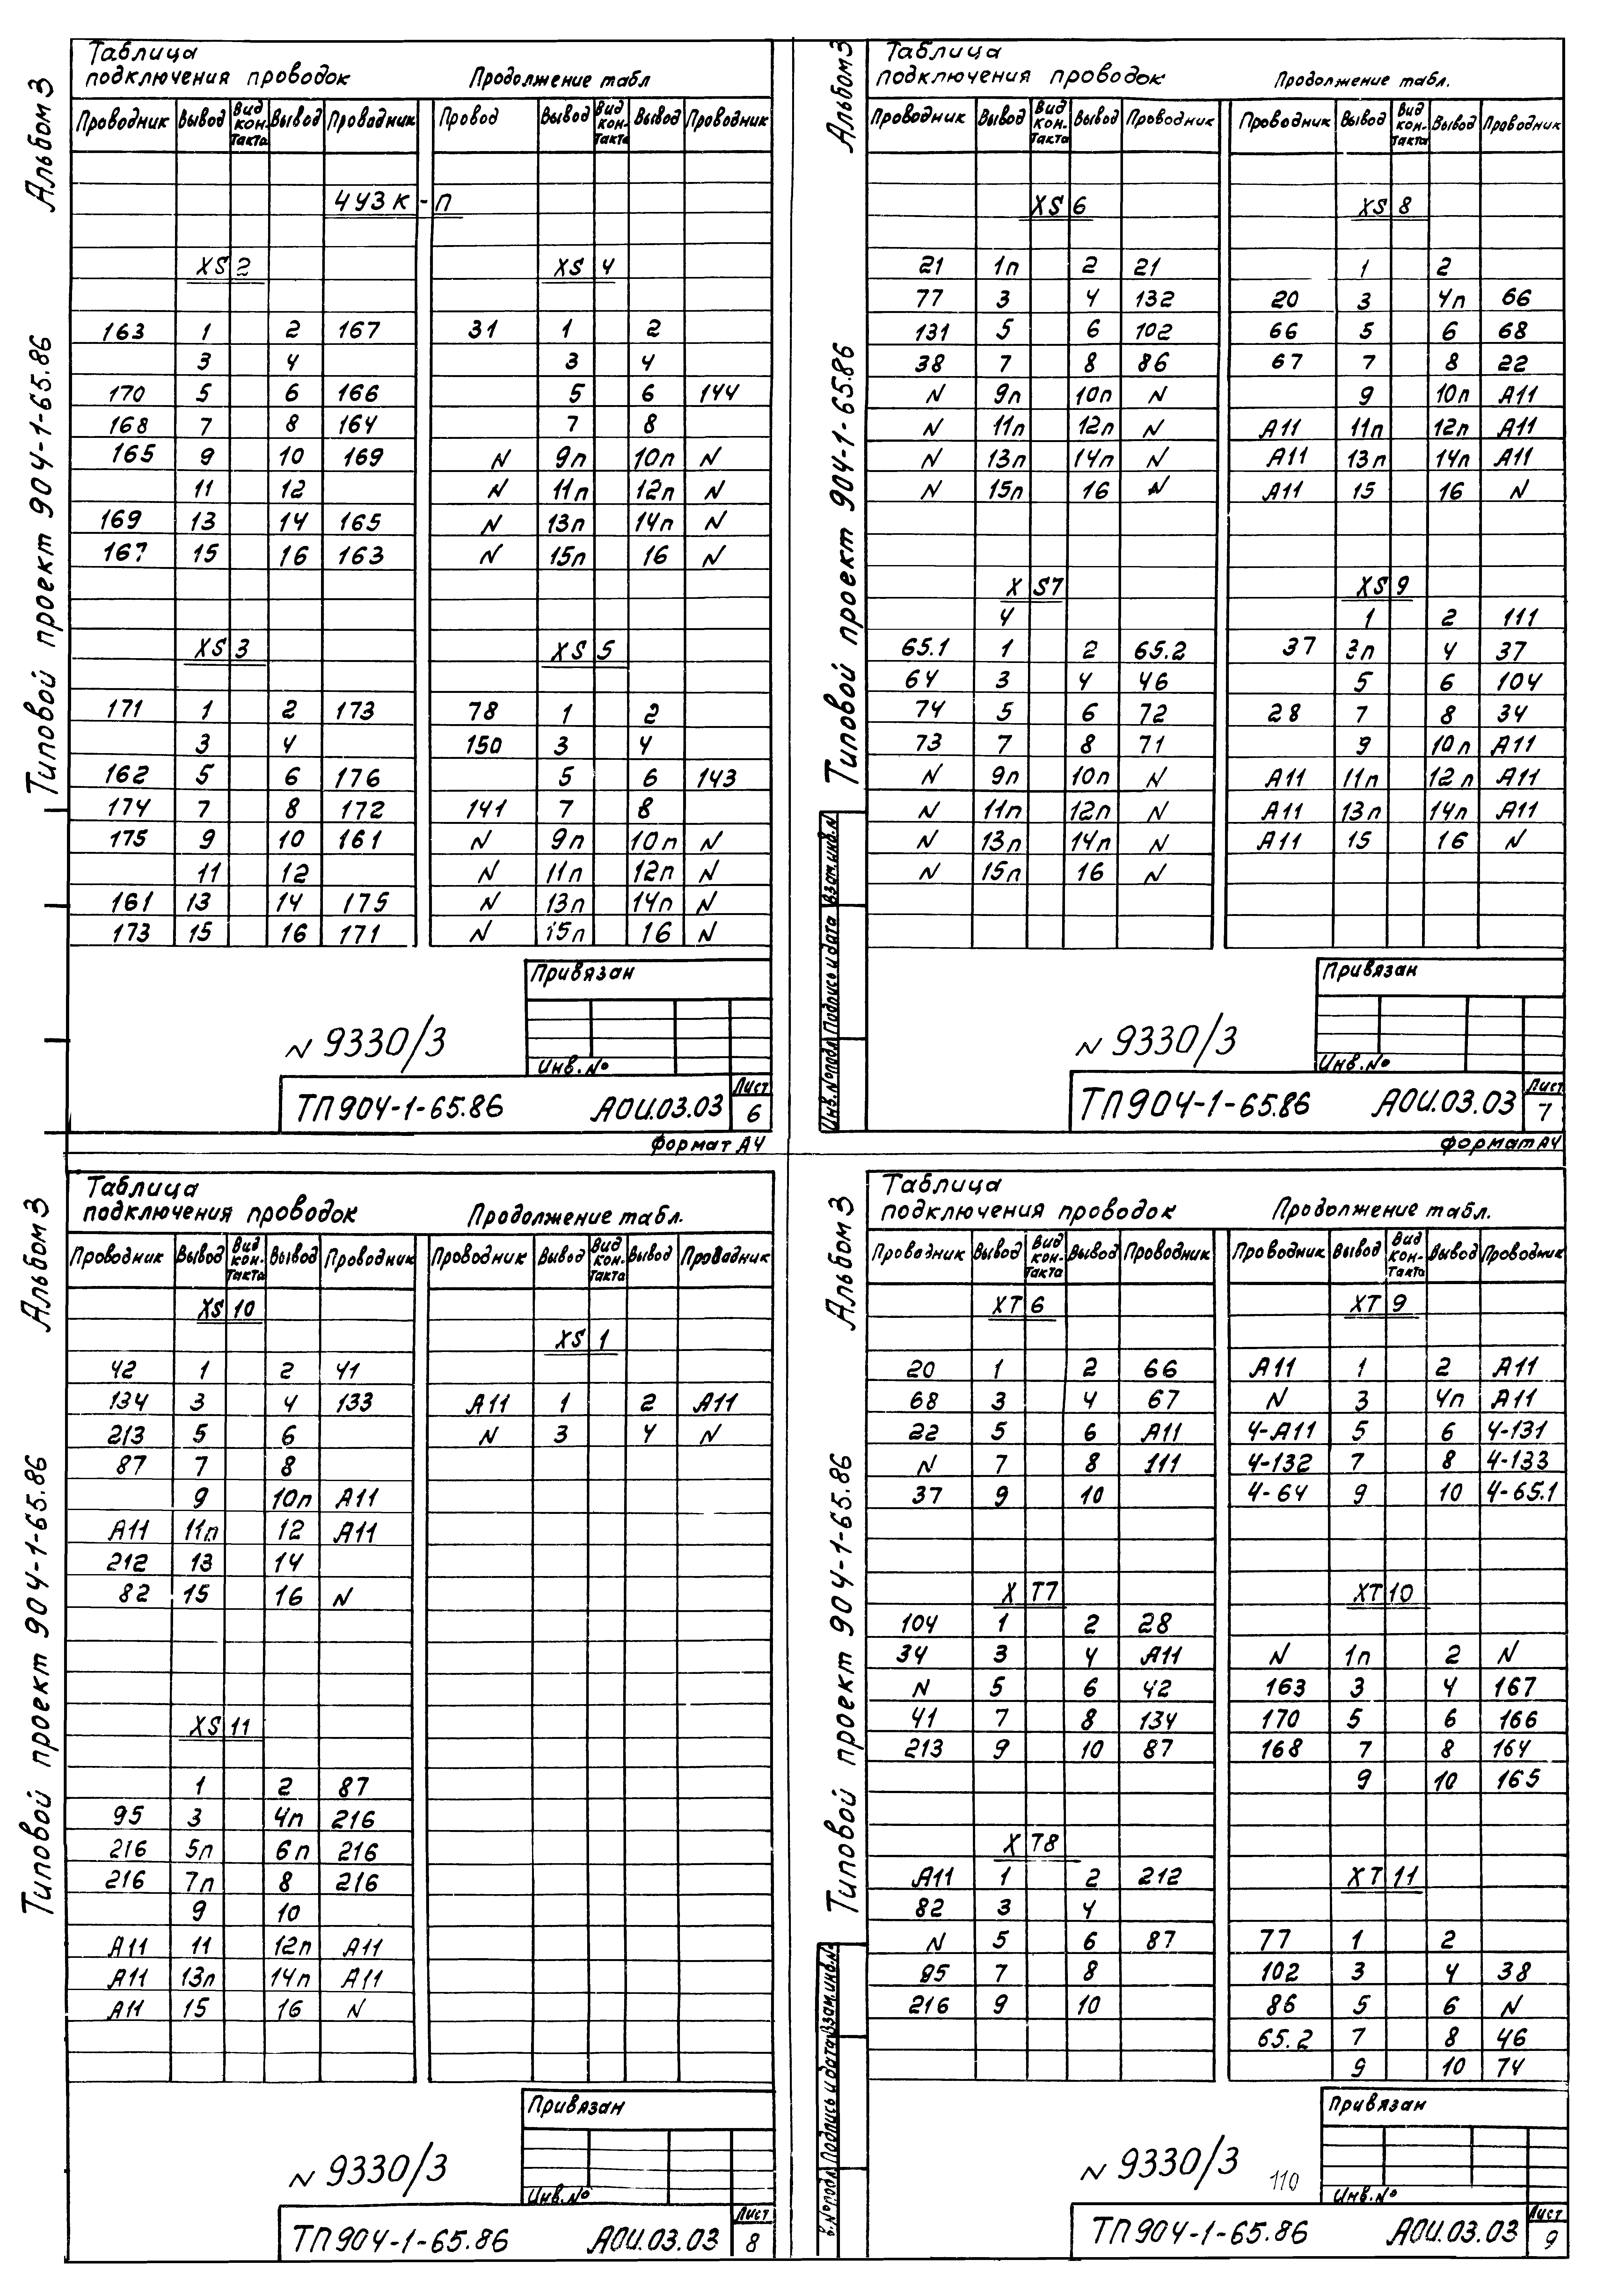 Альбом 3
Типовой проект 904-1-65.86
Таблица
подключения проводок Продолжение табл
Проводник Вывод Вид контакта Вывод Проводник Провод Вывод Вид контакта Вывод Проводник
4УЗК-П
XS 2 XS 4
163 1 2 167 31 1 2
3 4 3 4
170 5 6 166 5 6 144
168 7 8 164 7 8
165 9 10 169 N 9п 10п N
11 12 N 11п 12п N
169 13 14 165 N 13п 14п N
167 15 16 163 N 15п 16 N
XS 3 XS 5
171 1 2 173 78 1 2
3 4 150 3 4
162 5 6 176 5 6 143
174 7 8 172 141 7 8
175 9 10 161 N 9п 10п N
11 12 N 11п 12п N
161 13 14 175 N 13п 14п N
173 15 16 171 N 15п 16 N
Привязан
Инв.№
N 9330/3
ТП904-1-65.86 АОИ.03.03 Лист 6
Формат А4
Альбом 3
Типовой проект 904-1-65.86
Таблица
подключения проводок Продолжение табл.
Проводник Вывод Вид контакта Вывод Проводник Проводник Вывод Вид контакта Вывод Проводник
XS 6 XS 8
21 1п 2 21 1 2
77 3 4 132 20 3 4п 66
131 5 6 102 66 5 6 68
38 7 8 86 67 7 8 22
N 9п 10п N 9 10п А11
N 11п 12п N А11 11п 12п А11
N 13п 14п N А11 13п 14п А11
N 15п 16 N А11 15 16 N
X S7 XS 9
4 1 2 111
65.1 1 2 65.2 37 3п 4 37
64 3 4 46 5 6 104
74 5 6 72 28 7 8 34
73 7 8 71 9 10п А11
N 9п 10п N А11 11п 12п А11
N 11п 12п N А11 13п 14п А11
N 13п 14п N А11 15 16 N
N 15п 16 N
Инв.№подл Подпись и дата Взам.инв.N
Привязан
Инв.№
N 9330/3
ТП904-1-65.86 АОИ.03.03 Лист 7
Формат А4
Альбом 3
Типовой проект 904-1-65.86
Таблица
подключения проводок Продолжение табл.
Проводник Вывод Вид контакта Вывод Проводник Проводник Вывод Вид контакта Вывод Проводник
XS 10
XS 1
42 1 2 41
134 3 4 133 А11 1 2 А11
213 5 6 N 3 4 N
87 7 8
9 10п А11
А11 11п 12 А11
212 13 14
82 15 16 N
XS 11
1 2 87
95 3 4п 216
216 5п 6п 216
216 7п 8 216
9 10
А11 11 12п А11
А11 13п 14п А11
А11 15 16 N
Привязан
Инв.№
N 9330/3
ТП904-1-65.86 АОИ.03.03 Лист 8
Альбом 3
Типовой проект 904-1-65.86
Таблица
подключения проводок Продолжение табл.
Проводник Вывод Вид контакта Вывод Проводник Проводник Вывод Вид контакта Вывод Проводник
XT 6 XT 9
20 1 2 66 А11 1 2 А11
68 3 4 67 N 3 4п А11
22 5 6 А11 4-А11 5 6 4-131
N 7 8 111 4-132 7 8 4-133
37 9 10 4-64 9 10 4-65.1
X T7 XT 10
104 1 2 28
34 3 4 А11 N 1п 2 N
N 5 6 42 163 3 4 167
41 7 8 134 170 5 6 166
213 9 10 87 168 7 8 164
9 10 165
X T8
А11 1 2 212 XT 11
82 3 4
N 5 6 87 77 1 2
95 7 8 102 3 4 38
216 9 10 86 5 6 N
65.2 7 8 46
9 10 74
№подл Подпись и дата Взам.инв.№
Привязан
Инв.№
N 9330/3 110
ТП904-1-65.86 АОИ.03.03 Лист 9